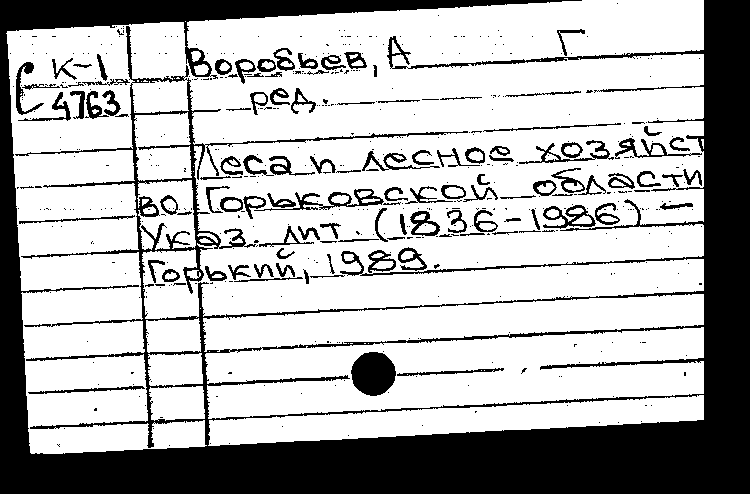 К-1 Воробьев, А Г
4763 ред.
Леса и лесное хозяйст
во Горьковской области
Указ. лит. (1836-1986) —
Горький, 1989.